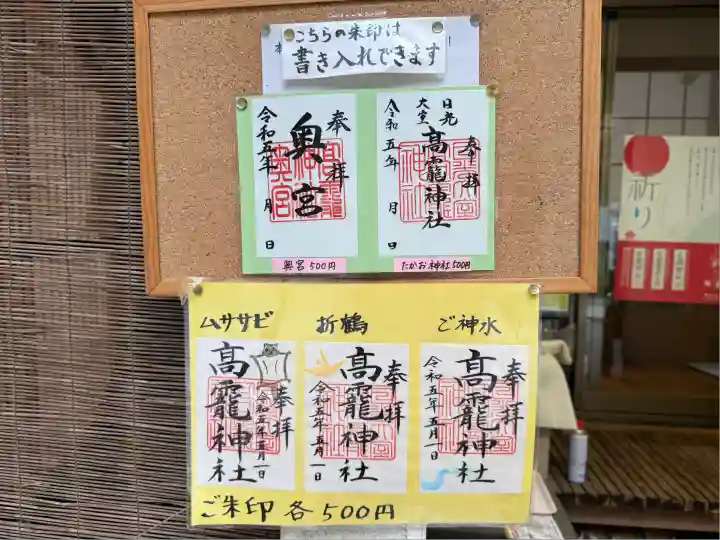 こちらの朱印は
書き入れできます
奉拝
奥宮
令和五年 月 日
奥宮500円
奉拝
日光
大室
高龗神社
令和五年 月 日
たかお神社500円
ムササビ
奉拝
高龗神社
令和五年五月一日
折鶴
奉拝
高龗神社
令和五年五月一日
ご神水
奉拝
高龗神社
令和五年五月一日
ご朱印 各500円
祈り